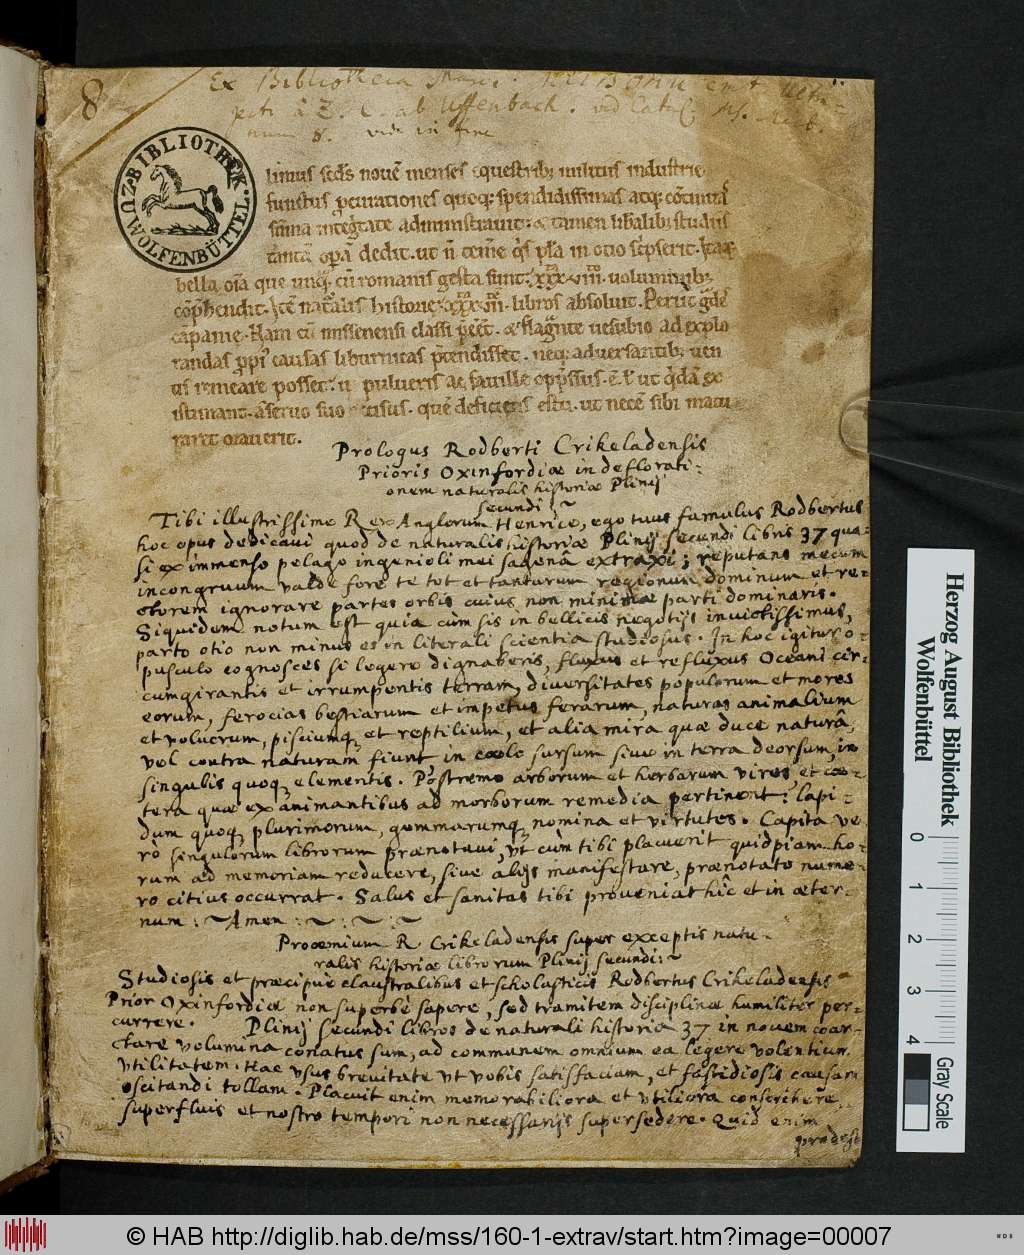 8
Ex Bibliotheca
ab Uffenbach.
vide in fine
BIBLIOTHEK
ZU WOLFENBÜTTEL
linius scds nouē menses equestrib; militiis industrie
functus pcurationes quoq; spendidissimas atq;
administrauit. & tamen libalib; studiis
opā dedit. ut n̄ in otio
bella, oīa que cū romanis gesta sunt. uoluminib;
cōphendit. historie libros absoluit. Periit
cāpanie. Nam cū missenensi classi & flagnte uesubio ad explo
randas causas liburnicas ptendisset. neq; aduersantib; uen
tis remeare posset. ui pulueris ac fauille oppssus. ē. ut qdā ex
istimant. seruo suo que deficiens estu. ut sibi matu
raret orauerit.
Prologus Rodberti Crikeladensis
Prioris Oxinfordiæ in deflorati-
onem naturalis historiæ Plinij
Secundi
Tibi illustrissime Rex Anglorum Henrice, ego tuus famulus Rodbertus
hoc opus dedicavi quod de naturalis historiæ Plinij Secundi libris 37 qua-
si ex immenso pelago ingenioli mei sagenâ extraxi; reputans mecum
incongruum valde fore te tot et tantarum regionum dominum et re-
ctorem ignorare partes orbis cuius non minimæ parti dominaris.
Siquidem notum est quia cùm sis in bellicis negotijs invictissimus,
parto otio non minus es in literali scientia studiosus. In hoc igitur o-
pusculo cognosces si legere dignaberis, fluxus et refluxus Oceani cir-
cumgirantis et irrumpentis terram, diversitates populorum et mores
eorum, ferocias bestiarum et impetus ferarum, naturas animalium
et volucrum, pisciumq; et reptilium, et alia mira quæ duce naturâ,
vel contra naturam fiunt in cælo sursum sive in terra deorsum, in
singulis quoq; elementis. Postremo arborum et herbarum vires, et cæ-
tera quæ ex animantibus ad morborum remedia pertinent: lapi-
dum quoq; plurimorum, gemmarumq; nomina et virtutes. Capita ve-
rò singulorum librorum prænotavi, vt cùm tibi placuerit quidpiam ho-
rum ad memoriam reducere, sive alijs manifestare, prænotato nume-
ro citius occurrat. Salus et sanitas tibi proveniat hîc et in æter-
num: ~ Amen : ~ : ~ : ~
Proœmium R. Crikeladensis super exceptis natu-
ralis historiæ librorum Plinij Secundi: ~
Studiosis et præcipue claustralibus et scholasticis Rodbertus Crikeladensis
Prior Oxinfordiæ non superbè sapere, sed tramitem disciplinæ humiliter per-
currere. Plinij Secundi libros de naturali historia 37 in novem coar-
ctare volumina conatus sum, ad communem omnium ea legere volentium
vtilitatem. Hac vsus brevitate vt vobis satisfaciam, et fastidiosis causam
oscitandi tollam. Placuit enim memorabiliora et vtiliora conscribere
superfluis et nostro tempori non necessarijs supersedere. Quid enim
prodest
Herzog August Bibliothek
Wolfenbüttel
0 1 2 3 4
Gray Scale
© HAB http://diglib.hab.de/mss/160-1-extrav/start.htm?image=00007